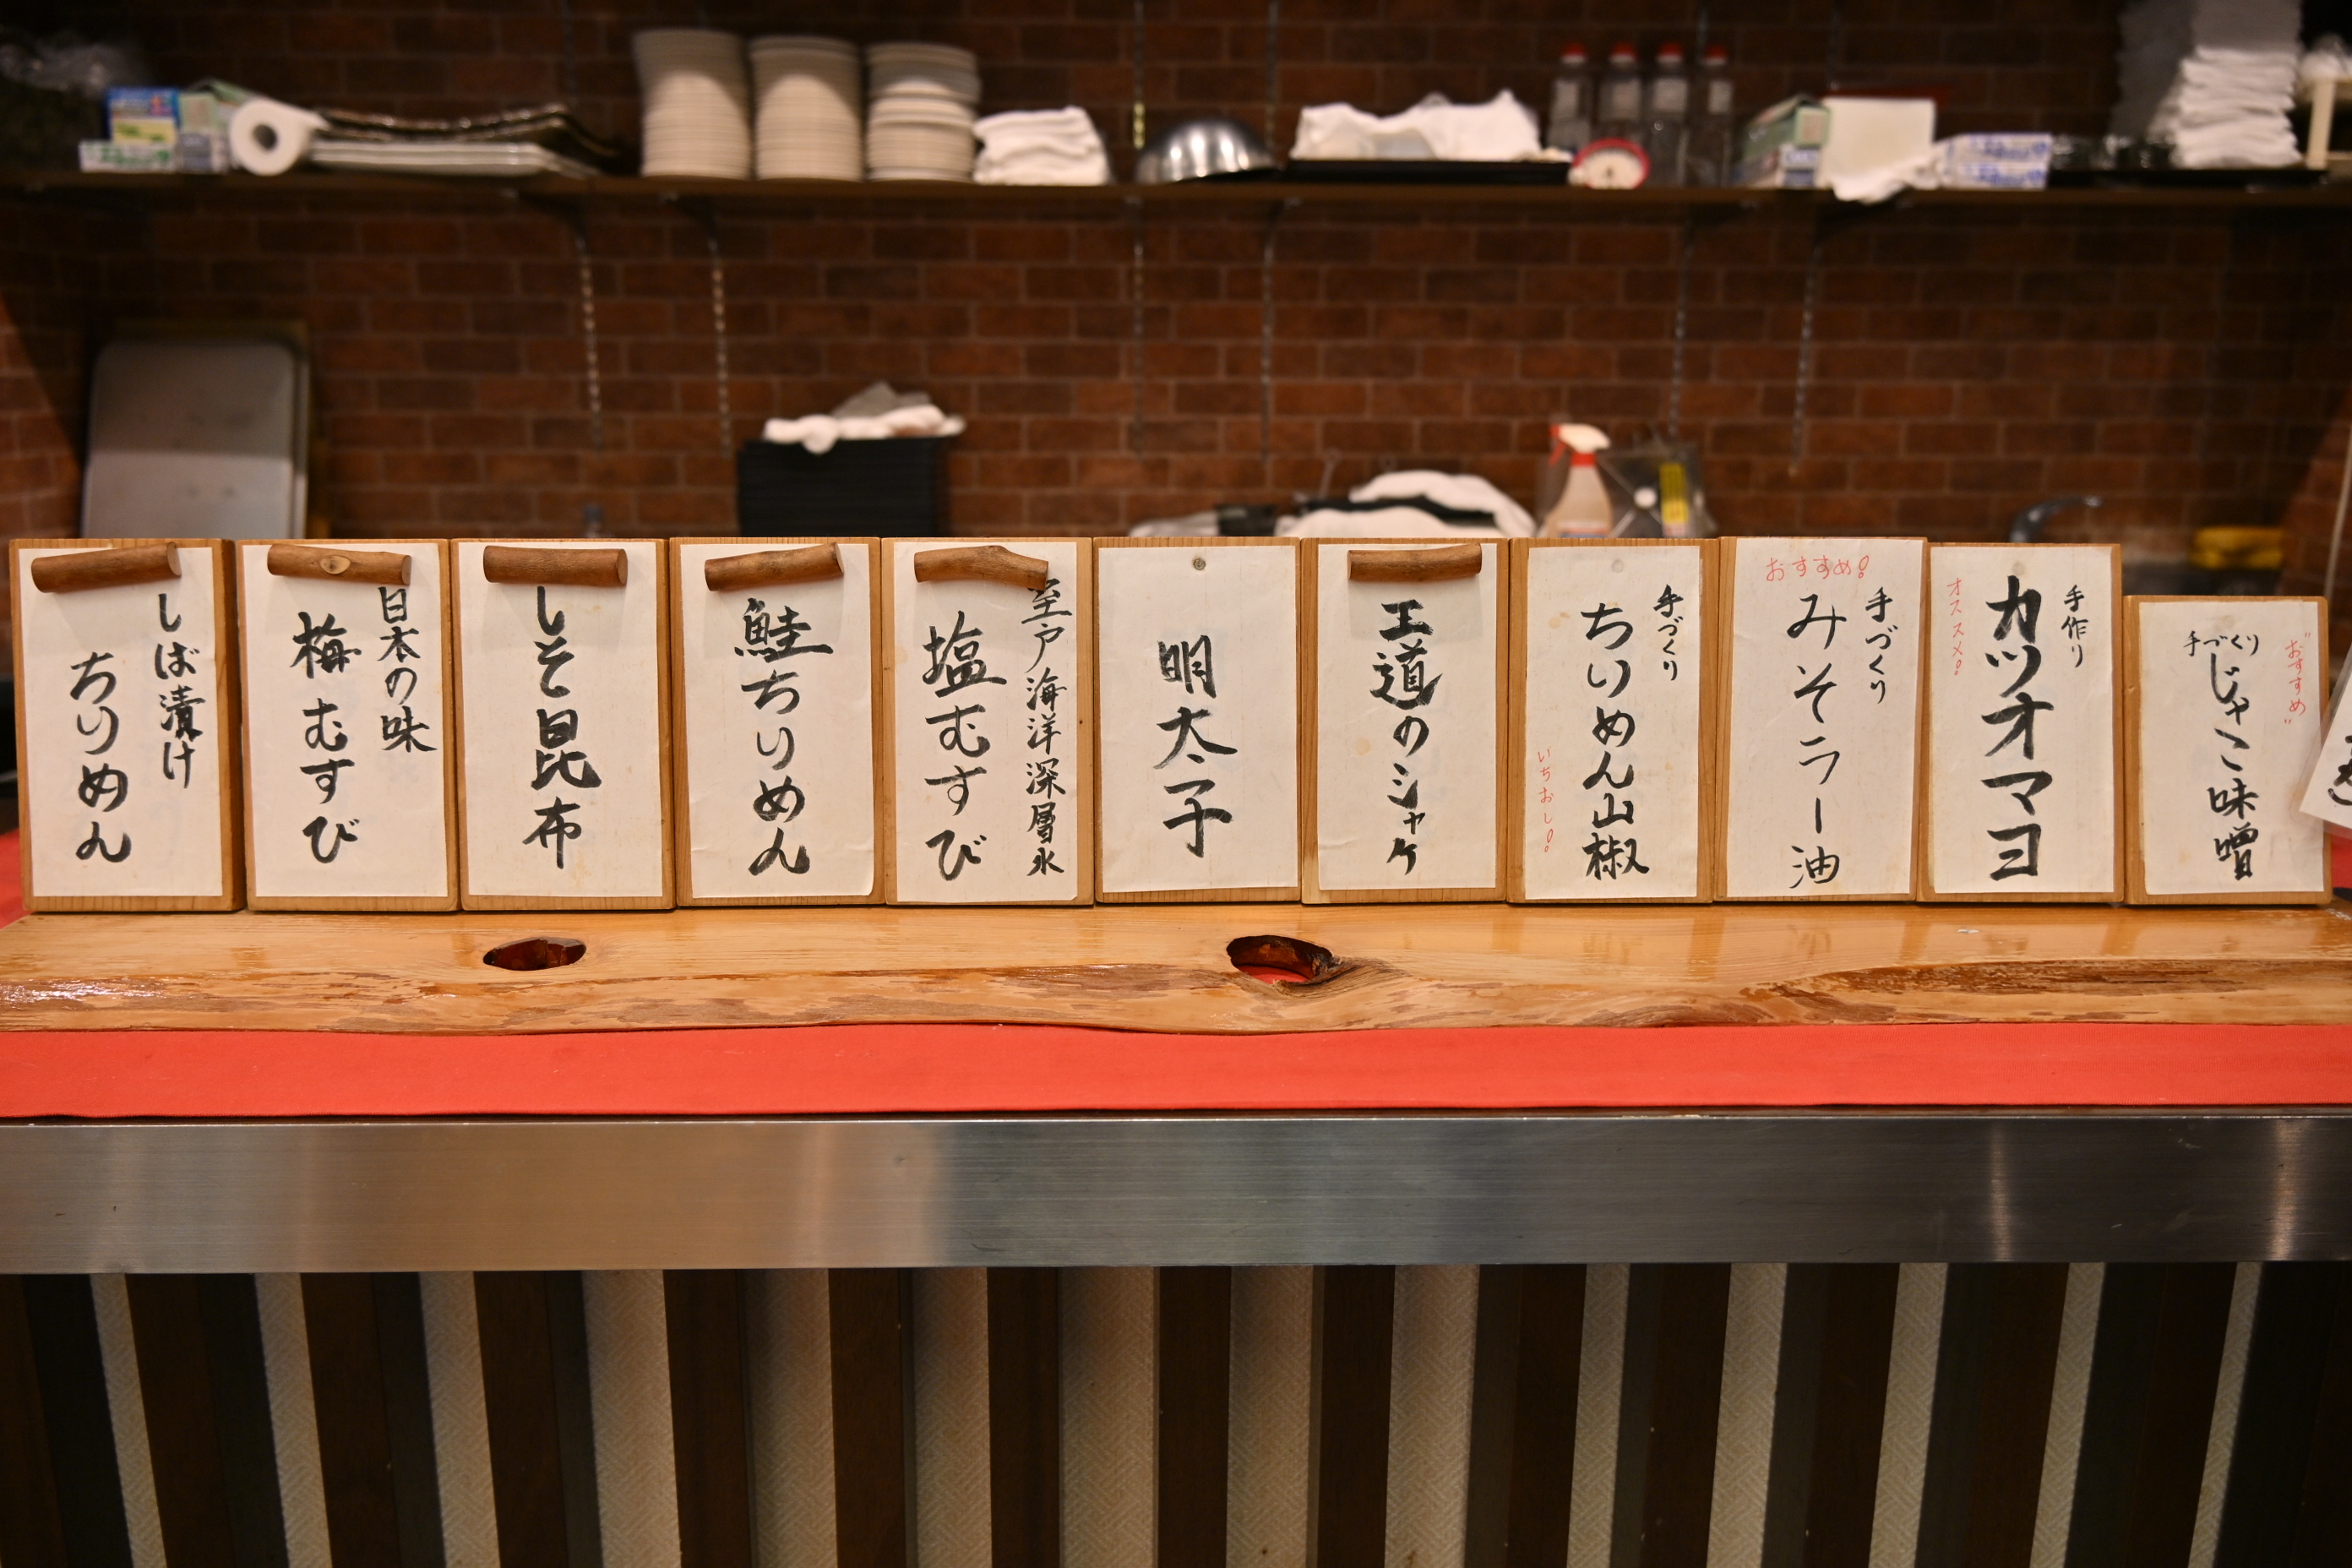 "おすすめ"
手づくり
じゃこ味噌
手作り
カツオマヨ
オススメ!
おすすめ!
手づくり
みそラー油
手づくり
ちりめん山椒
いちおし!
王道のシャケ
明太子
室戸海洋深層水
塩むすび
鮭ちりめん
しそ昆布
日本の味
梅むすび
しば漬け
ちりめん